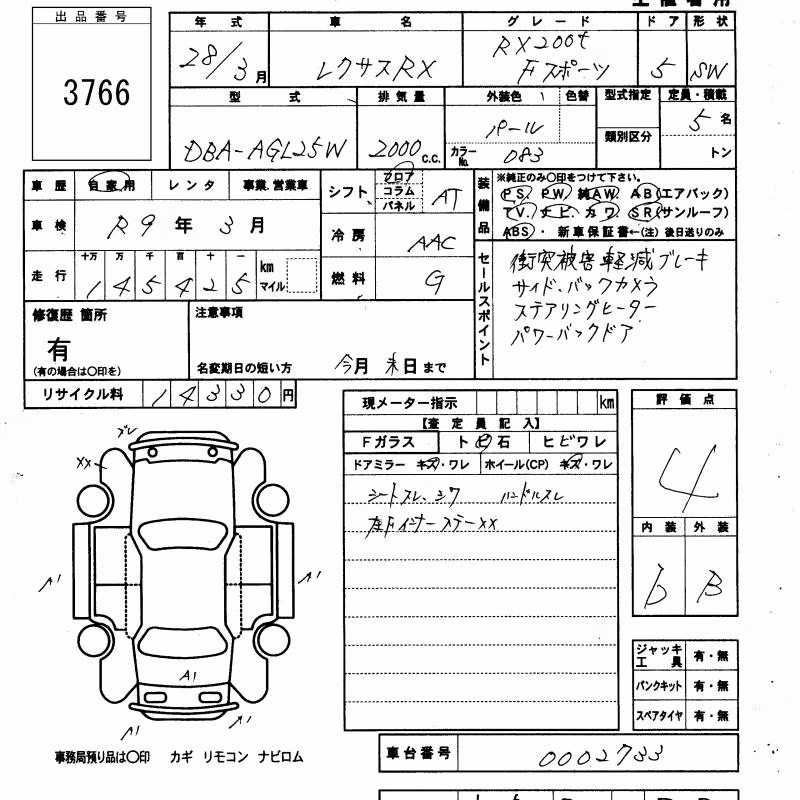 出品番号
3766
年式 車名 グレード ドア 形状
28/3月 レクサスRX RX200t Fスポーツ 5 SW
型式 排気量 外装色 色替 型式指定 定員・積載
DBA-AGL25W 2000 c.c. パール カラーNo. 083 類別区分 5名 トン
車歴 自家用 レンタ 事業.営業車
車検 R9年3月
走行 十万 万 千 百 十 一 km マイル
145425
シフト フロア コラム パネル AT
冷房 AAC
燃料 G
装備品
※純正のみ〇印をつけて下さい。
PS. PW. 純AW. AB(エアバック)
TV. ナビ. カワ. SR(サンルーフ)
ABS・新車保証書←(注)後日送りのみ
セールスポイント
衝突被害軽減ブレーキ
サイド、バックカメラ
ステアリングヒーター
パワーバックドア
修復歴 箇所
有
(有の場合は〇印を)
注意事項
名変期日の短い方 今月末日まで
リサイクル料 14330円
現メーター指示 km
【査定員記入】
Fガラス トビ石 ヒビワレ
ドアミラー キズ・ワレ ホイール(CP) キズ・ワレ
シートスレ、シワ ハンドルスレ
評価点
4
内装 外装
b B
ブレ
XX
A1
A1
A1
A1
A1
ジャッキ工具 有・無
パンクキット 有・無
スペアタイヤ 有・無
事務局預り品は〇印 カギ リモコン ナビロム
車台番号 0002733